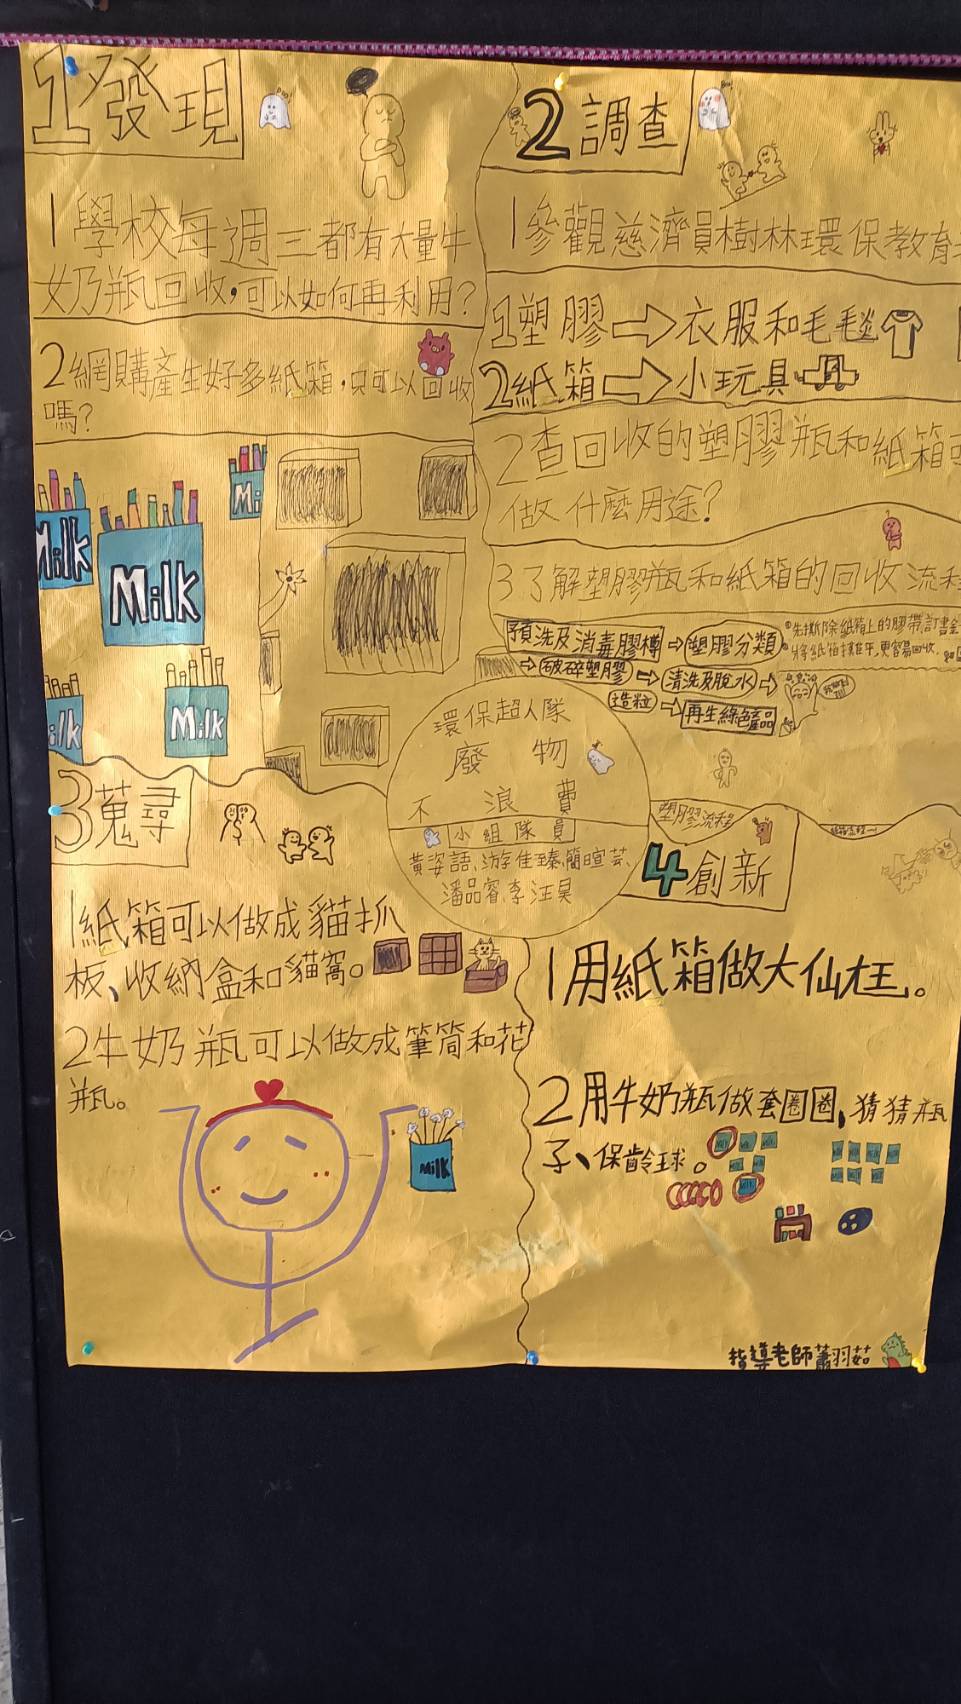 1發現
1學校每週三都有大量牛
奶瓶回收,可以如何再利用?
2網購產生好多紙箱,只可以回收
嗎?
Milk
Milk
Mi
Milk
Milk
2調查
1參觀慈濟員樹林環保教育
1塑膠→衣服和毛毯
2紙箱→小玩具
2查回收的塑膠瓶和紙箱可
做什麼用途?
3了解塑膠瓶和紙箱的回收流程
預洗及消毒膠樽→塑膠分類
→破碎塑膠→清洗及脫水→
造粒→再生綠色產品
先撕除紙箱上的膠帶訂書金
更容易回收.
環保超人隊
廢物
不浪費
小組隊員
塑膠流程
3蒐尋
1紙箱可以做成貓抓
板、收納盒和貓窩。
2牛奶瓶可以做成筆筒和花
瓶。
Milk
4創新
1用紙箱做大仙尪。
2用牛奶瓶做套圈圈,猜猜瓶
子、保齡球。
指導老師蕭羽茹